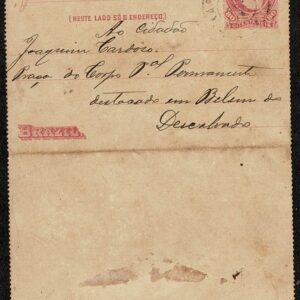 (NESTE LADO SÓ O ENDEREÇO.)
Ao Cidadão
Joaquim Cardoso.
Praça do Corpo P.al Permanente
destacado em Belem do
Descalvado
BRAZIL